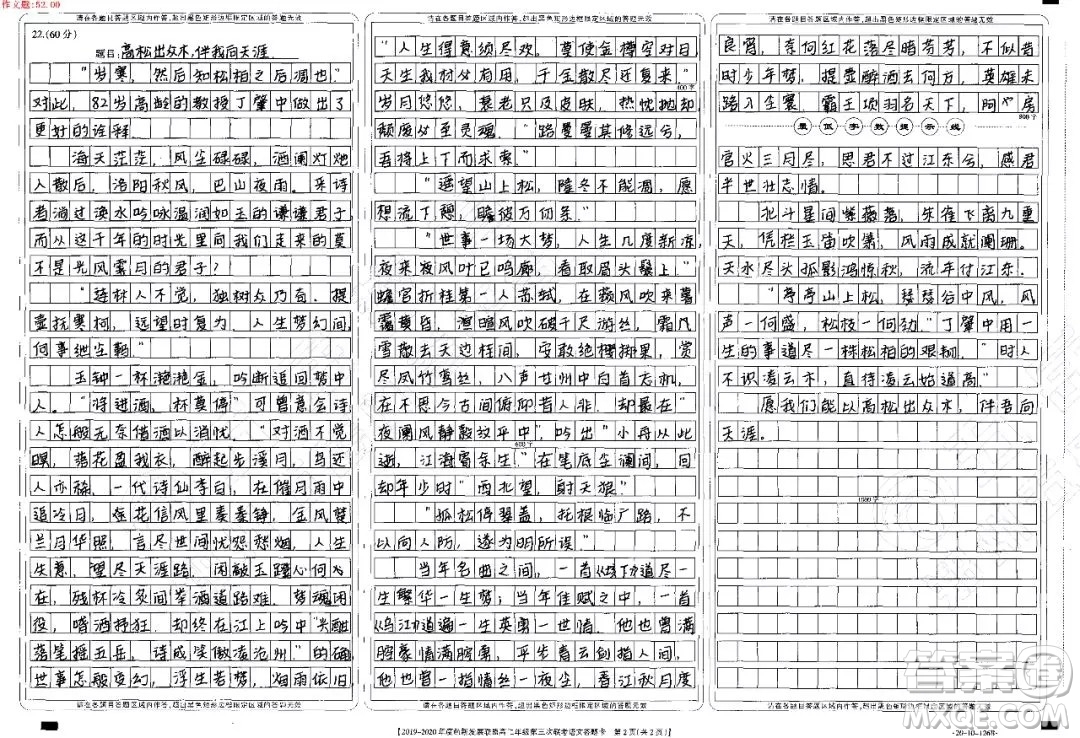 作文题:52.00
请在各题目答题区域内作答,超出黑色矩形边框限定区域的答题无效
22.(60分)
题目:高松出众木,伴我向天涯
"岁寒,然后知松柏之后凋也"
对此,82岁高龄的教授丁肇中做出了
更好的诠释。
海天茫茫,风尘碌碌,酒阑灯灺
人散后,洛阳秋风,巴山夜雨。采诗
者淌过涣水吟咏温润如玉的谦谦君子
而从这千年的时光里向我们走来的莫
不是光风霁月的君子?
"连林人不觉,独树众乃奇。提
壶抚寒柯,远望时复为。人生梦幻间,
何事绁尘羁"
玉钟一杯滟滟金,吟断追回梦中
人。"将进酒,杯莫停"可曾意会诗
人怎般无奈借酒以消忧。"对酒不觉
暝,落花盈我衣,醉起步溪月,鸟还
人亦稀。一代诗仙李白,在催月雨中
追冷日,
花信风里奏秦筝,金风楚
兰月华照,言尽世间忧怨愁烟,人生
生意,望尽天涯路,闲敲玉
心何
在,残杯冷炙间举酒道路难。梦魂困
役,嗜酒抒狂,却终在江上吟"兴酣
落笔摇五岳。诗成笑傲凌沧州"的确
世事怎般变幻,浮生若梦,烟雨依旧
请在各题目答题区域内作答,超出黑色矩形边框限定区域的答题无效
请在各题目答题区域内作答,超出黑色矩形边框限定区域的答题无效
"人生得意须尽欢。莫使金樽空对月
天生我材必有用,千金散尽还复来"
400字
岁月悠悠,衰老只及皮肤,热忱抛却
颓废必至灵魂。"路曼曼其修远兮,
吾将上下而求索。"
"遥望山上松,隆冬不能凋,愿
想流下憩,瞻彼万仞条。"
"世事一场大梦,人生几度新凉
夜来夜风叶已鸣廊,看取眉头鬓上"
蟾宫折桂第一人苏轼,在薇风吹来暮
霭黄昏,澶暗风吹破千尺游丝,霜几
雪散去天边柱间,安敢绝棚掷果,赏
尽凤竹鸾丝,八声甘州中自苦志机,
在不思今古间俯仰昔人非。却最在"
夜阑风静縠纹平中",吟出"小舟从此
600字
逝,江海寄余生"在笔底尘澜间,回
却年少时"西北望,射天狼"
"孤松停翠盖,托根临广路,不
以向人防,遂为明所误"
当年名曲之间,一首《从坡下》道尽
生繁华一生梦;当年佳赋之中,一首
《乌江》力道遍一生英勇一世情。他也曾满
腔豪情满腑胸,平步青云剑指人间,
他也曾一指情丝一夜尘,春江秋月度
请在各题目答题区域内作答,超出黑色矩形边框限定区域的答题无效
请在各题目答题区域内作答,超出黑色矩形边框限定区域的答题无效
良宵,奈何红花落尽暗芬芳,不似昔
时少年梦,提壶醉洒去何方,英雄未
路入尘寰,霸王项羽名天下,阿
房
800字
最低字数提示线
宫火三月尽,思君不过江东兮,感君
半世壮志情。
北斗星间紫薇落,朱雀飞离九重
天,凭栏玉笛吹箫,风雨成就阑珊。
天水尽头孤影鸿惊秋,流年付江东。
"亭亭山上松,瑟瑟谷中风,风
声一何盛,松枝一何劲"丁肇中用一
生的事道尽一株松柏的艰韧。"时人
不识凌云木,直待凌云始道高"
愿我们能以高松出众木,伴吾向
天涯。
1000字
请在各题目答题区域内作答,超出黑色矩形边框限定区域的答题无效
答案圈
【2019-2020年度
发展联盟高
年级第三次联考语文答题卡 第2页(共2页)】
·20-10-126B·